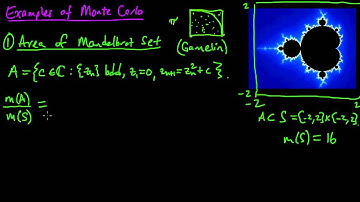 Examples of Monte Carlo
π
① Area of Mandelbrot Set
(Gamelin)
A = {c ∈ ℂ : {zₙ} bdd, z₁=0, zₙ₊₁=zₙ²+c}.
m(A)/m(S) =
2
-2
-2
2
A ⊂ S = [-2,2]×[-2,2].
m(S) = 16